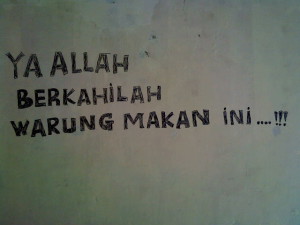 YA ALLAH
BERKAHILAH
WARUNG MAKAN INI....!!!